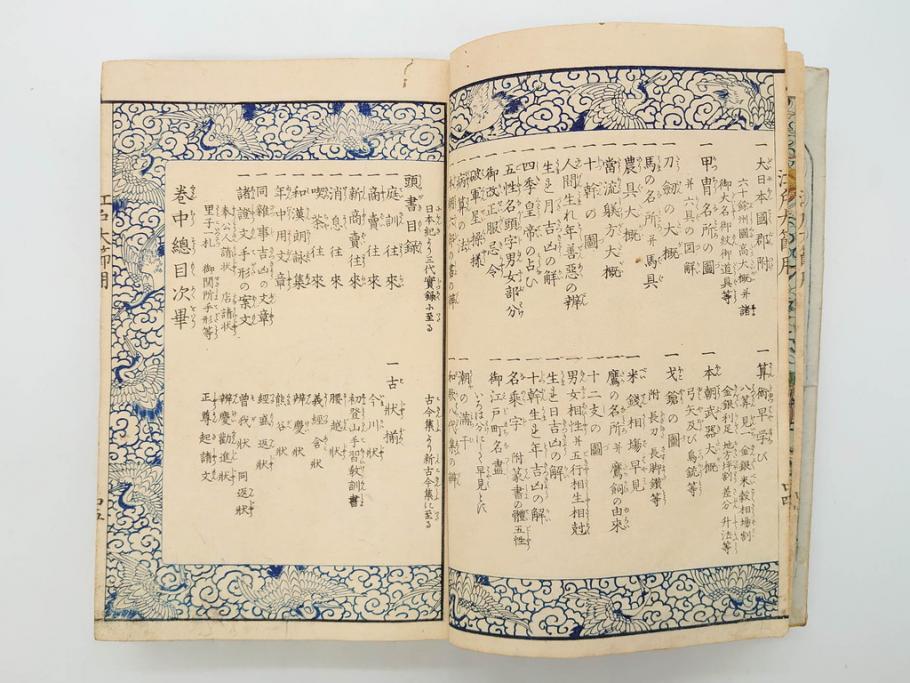 一 大日本國郡附
六十餘洲國高大概并諸
御大名御紋御道具等
一 甲冑名所の圖
并六具の図解
刀劔の大概
一 馬の名所并馬具
一 農具大概
一 當流躾方大概
一 十幹の圖
一 人間生れ年善惡の辨
一 生れ月吉凶の解
一 四季皇帝の占ひ
一 五性名頭字男女部分
一 御改正服忌令
一 破軍星操様
一 算術早学び
八算見一 金銀米穀相場割
金銀利足 地方坪割 差分 升法等
一 本朝武器大概
弓矢及び鳥銃等
一 戈鎗の圖
附 長刀 長脚鑽等
一 米錢相場早見
一 鷹の名所并鷹飼の由來
一 十二支の圖
一 男女相性并五行相生相尅
一 生れ日吉凶の解
一 十幹生れ年吉凶の解
一 名乗字 附 篆書の體五性
一 御江戸町名盡
いろは分にして早見とす
一 潮の満干
頭書目録
日本紀より三代實録に至る
一 庭訓往來
一 商賣往來
一 新商賣往來
一 消息往來
一 喫茶往來
一 和漢朗詠集
一 年中用文章
一 同雜事吉凶の文章
一 諸證文手形の案文
奉公人請狀 店請狀
里子札 御関所手形等
卷中總目次畢
古今集より新古今集に至る
一 古狀揃
今川狀
初登山手習教訓書
腰越狀
義經含狀
辨慶狀
熊谷狀
經盛返狀
曽我狀 同返狀
辨慶勸進狀
正尊起請文
江戸大節用